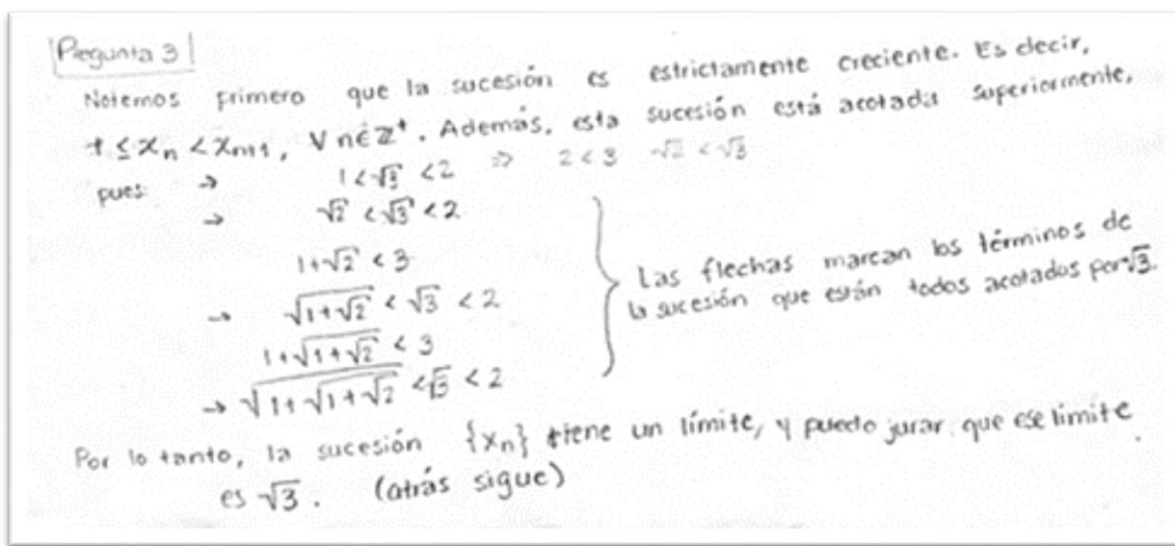 Pregunta 3
Notemos primero que la sucesión es estrictamente creciente. Es decir,
1 ≤ xₙ < xₙ₊₁, ∀ n ∈ ℤ⁺. Además, esta sucesión está acotada superiormente,
pues: → 1 < √3 < 2 ⇒ 2 < 3 √2 < √3
→ √2 < √3 < 2
1+√2 < 3
→ √(1+√2) < √3 < 2
1+√(1+√2) < 3
→ √(1+√(1+√2)) < √3 < 2
Las flechas marcan los términos de
la sucesión que están todos acotados por √3.
Por lo tanto, la sucesión {xₙ} tiene un límite, y puedo jurar que ese límite
es √3. (atrás sigue)